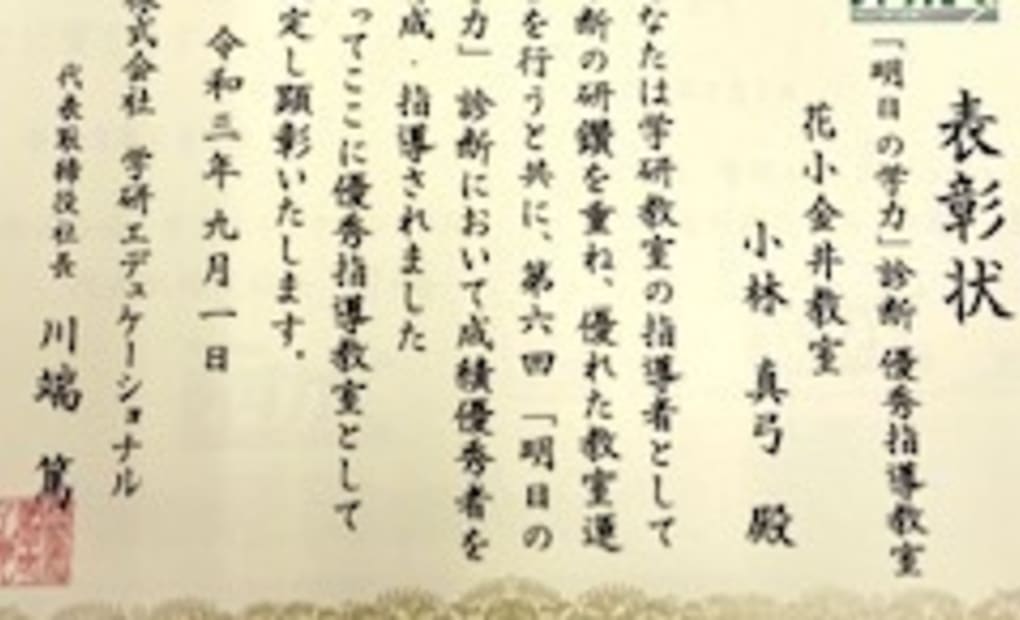 表彰状
「明日の学力」診断 優秀指導教室
花小金井教室
小林 真弓 殿
なたは学研教室の指導者として
断の研鑽を重ね、優れた教室運
を行うと共に、第六回「明日の
力」診断において成績優秀者を
成・指導されました
ってここに優秀指導教室として
定し顕彰いたします。
令和三年九月一日
株式会社 学研エデュケーショナル
代表取締役社長 川端 篤